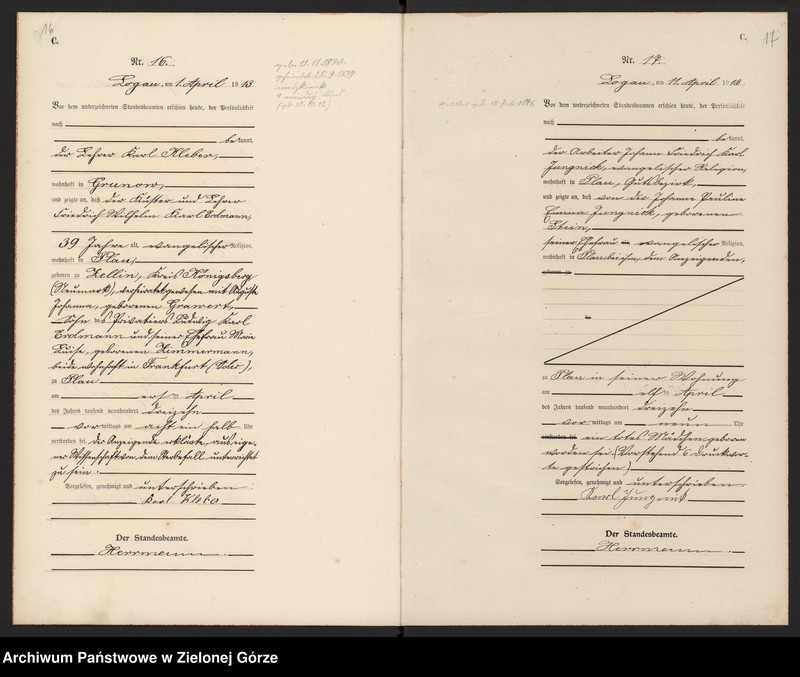 16
C.
Nr. 16.
Logau, am 1. April 1913.
Vor dem unterzeichneten Standesbeamten erschien heute, der Persönlichkeit
nach
bekannt,
der Lehrer Karl Kleber,
wohnhaft in Grunow,
und zeigte an, daß der Küster und Lehrer
Friedrich Wilhelm Karl Erdmann,
39 Jahre alt, evangelischer Religion,
wohnhaft in Plau,
geboren zu Zellin, Kreis Königsberg
(Neumark), verheiratet gewesen mit Auguste
Johanna, geborenen Grawert,
Sohn des Privatiers Ludwig Karl
Erdmann und seiner Ehefrau Marie
Luise, geborenen Zimmermann,
beide wohnhaft in Frankfurt (Oder),
zu Plau
am ersten April
des Jahres tausend neunhundert dreizehn
vormittags um acht ein halb Uhr
verstorben sei. Der Anzeigende erklärte, aus eige-
ner Wissenschaft von dem Sterbefall unterrichtet
zu sein.
Vorgelesen, genehmigt und unterschrieben
Karl Kleber
Der Standesbeamte.
Herrmann.
C.
17
Nr. 17.
Logau, am 11. April 1913.
Vor dem unterzeichneten Standesbeamten erschien heute, der Persönlichkeit
nach
bekannt,
der Arbeiter Johann Friedrich Karl
Jungnick, evangelischer Religion,
wohnhaft in Plau, Gutsbezirk,
und zeigte an, daß von der Johanne Pauline
Emma Jungnick, geborenen
Stein,
seiner Ehefrau alt, evangelischer Religion,
wohnhaft in Plau bei ihm, dem Anzeigenden,
geboren zu
zu Plau in seiner Wohnung
am elften April
des Jahres tausend neunhundert dreizehn
vormittags um neun Uhr
verstorben sei ein totes Mädchen geboren
worden sei. (Vorstehend 6 Druckwor-
te gestrichen)
Vorgelesen, genehmigt und unterschrieben
Karl Jungnick
Der Standesbeamte.
Herrmann.
Archiwum Państwowe w Zielonej Górze